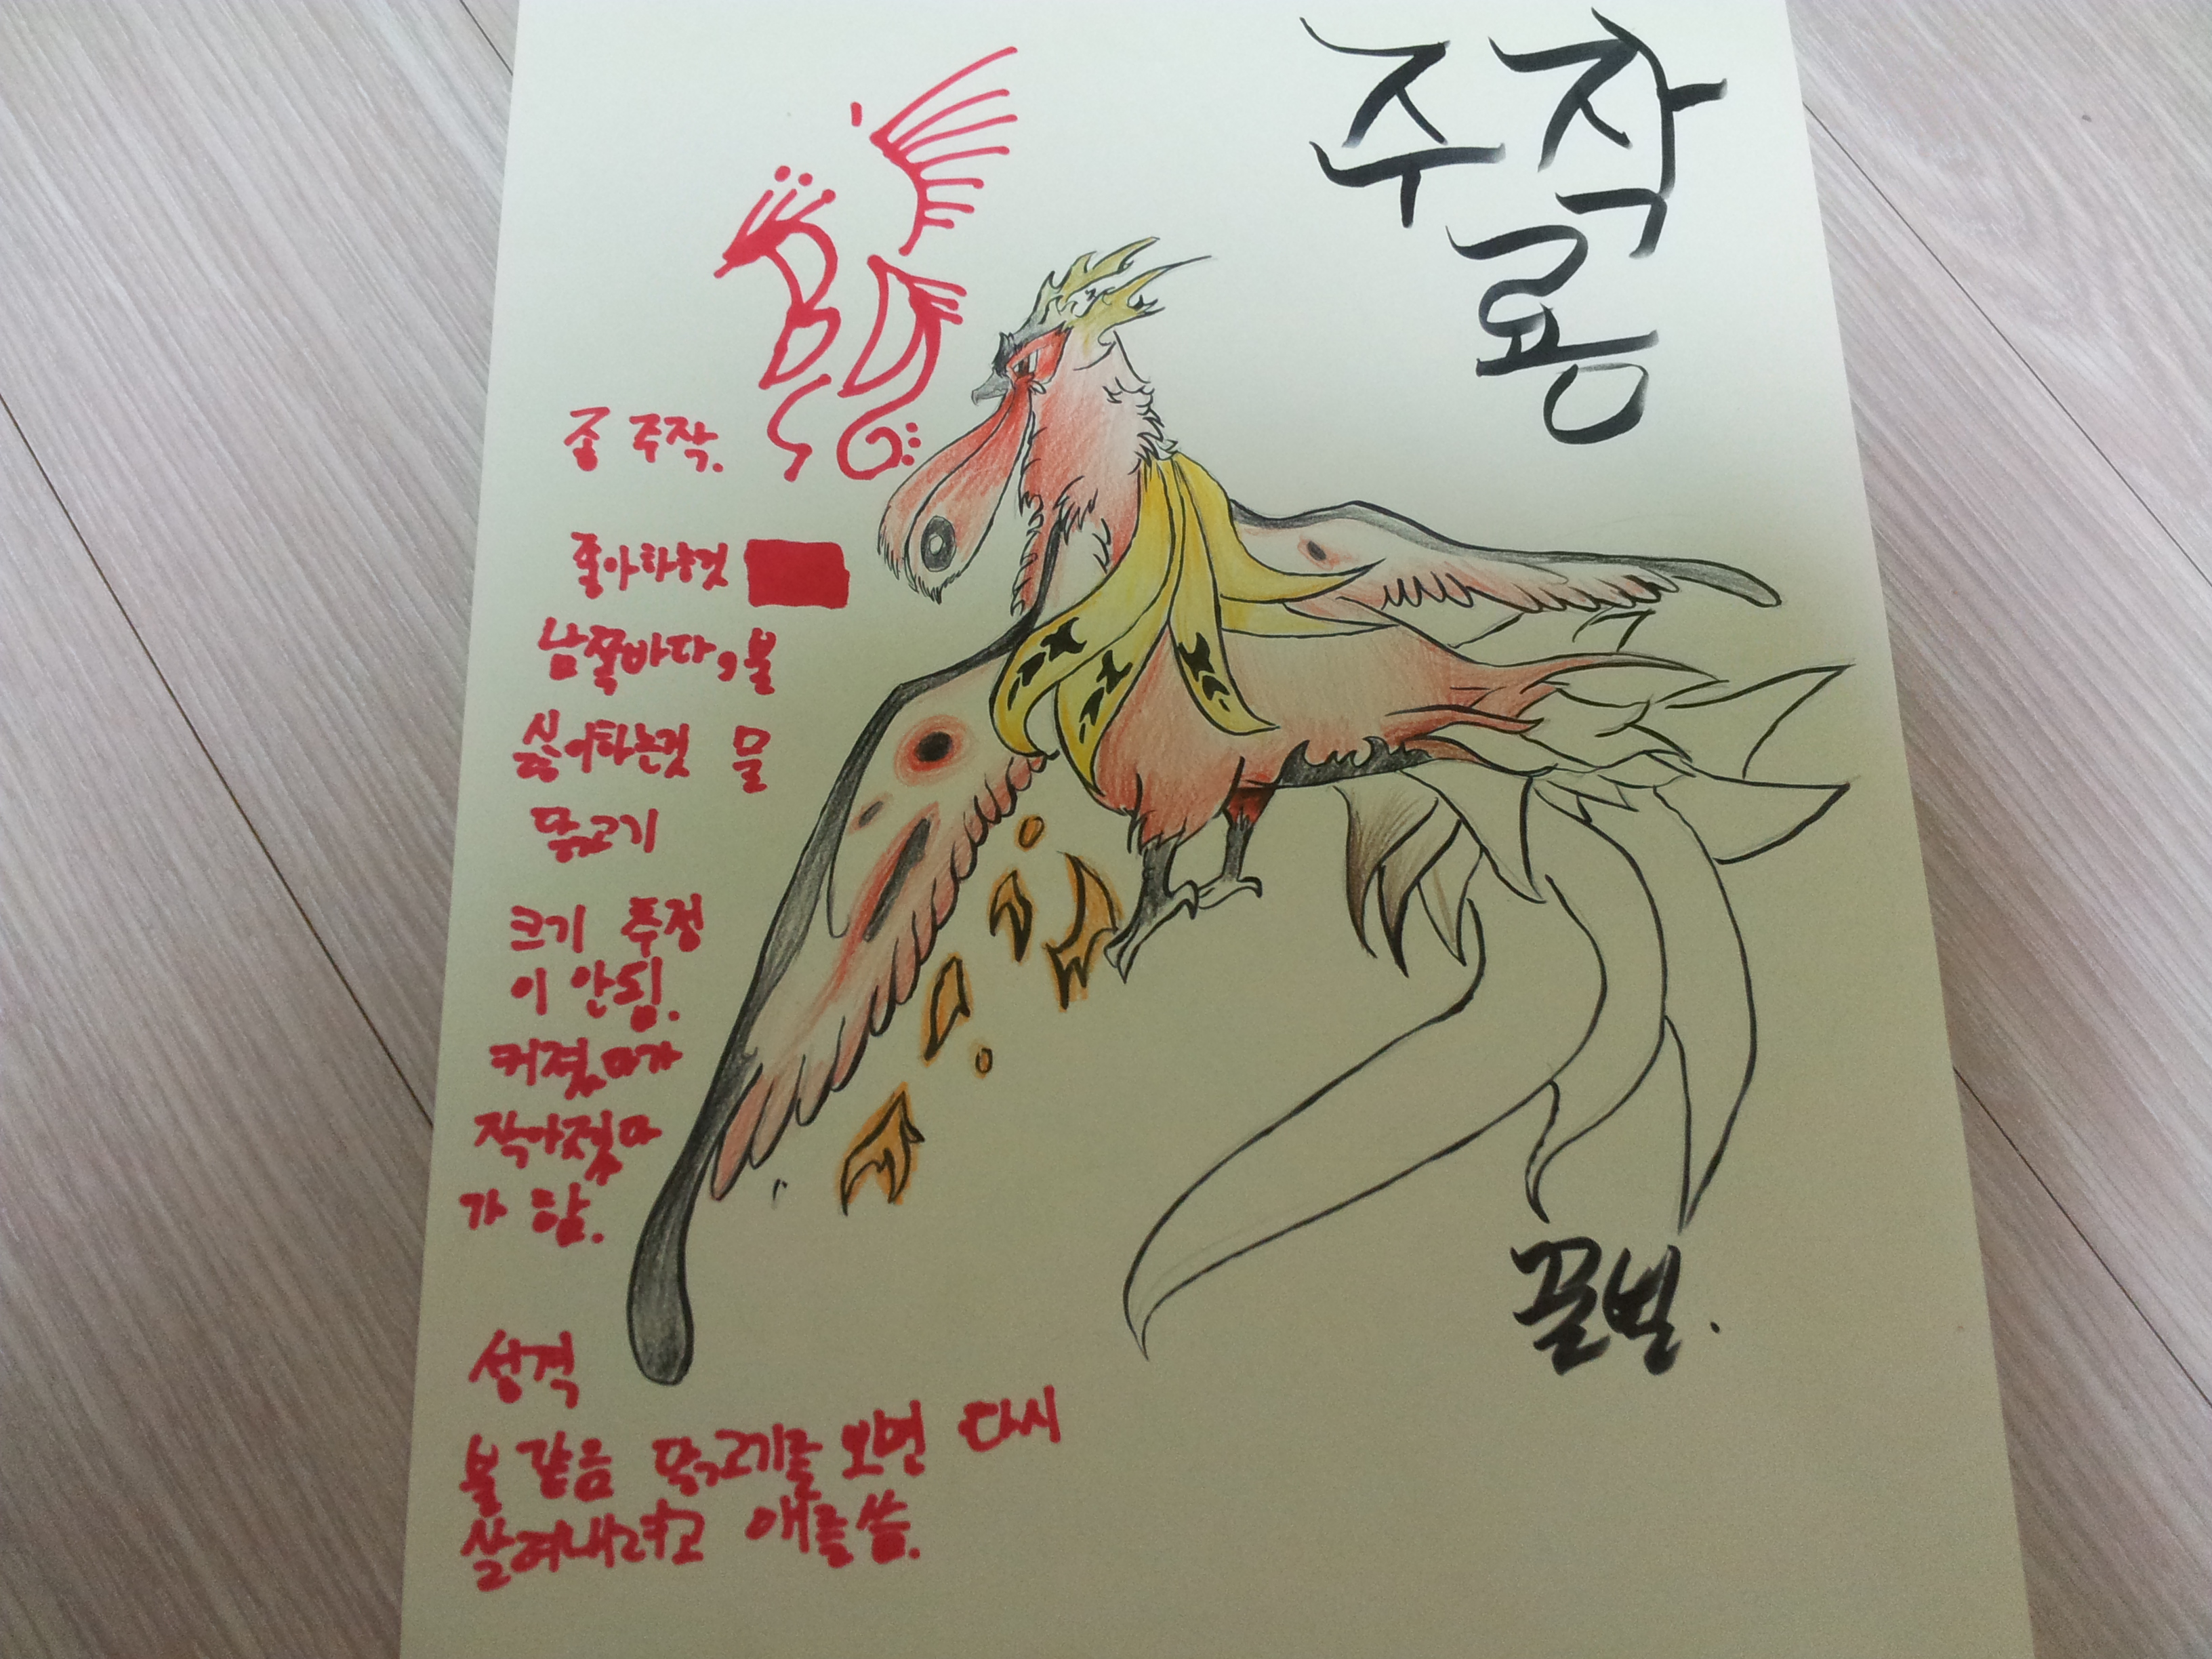 주작
룡
종 주작.
좋아하는것
남쪽바다, 불
싫어하는것 물
닭고기
크기 추정
이 안됨.
커졌다가
작아졌다
가 함.
성격
불 같음 닭고기를 보면 다시
살려내려고 애를씀.
꿀벌.